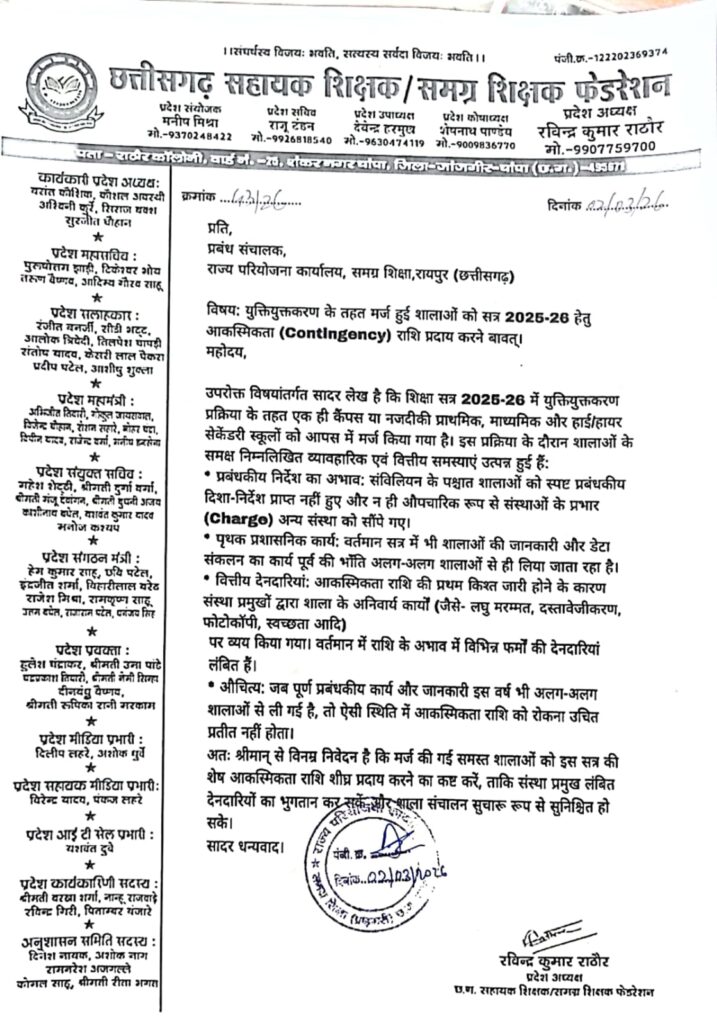 ।।संघर्षस्य विजयः भवति, सत्यस्य सर्वदा विजयः भवति।।
पंजी.क्र.-122202369374
छत्तीसगढ़ सहायक शिक्षक/समग्र शिक्षक फेडरेशन
प्रदेश संयोजक
मनीष मिश्रा
मो.-9370248422
प्रदेश सचिव
राजू टंडन
मो.-9926818540
प्रदेश उपाध्यक्ष
देवेन्द्र हरमुख
मो.-9630474119
प्रदेश कोषाध्यक्ष
शेषनाथ पाण्डेय
मो.-9009836770
प्रदेश अध्यक्ष
रविन्द्र कुमार राठौर
मो.-9907759700
पता - राठौर कॉलोनी, वार्ड नं. -20, शंकर नगर चांपा, जिला-जांजगीर-चांपा (छ.ग.) -495671
कार्यकारी प्रदेश अध्यक्षः
बसंत कौशिक, कौशल अवस्थी
अश्विनी कुर्रे, सिराज बक्श
सुरजीत चौहान
प्रदेश महासचिव :
पुरुषोत्तम झाड़ी, टिकेश्वर भोय
तरूण वैष्णव, आदित्य गौरव साहू
प्रदेश सलाहकार :
रंजीत बनर्जी, सीडी भट्ट,
आलोक त्रिवेदी, तिलपेश पापड़ी
संतोष यादव, केसरी लाल पैकरा
प्रदीप पटेल, आशीषु शुक्ला
प्रदेश महामंत्री :
अभिजीत तिवारी, गोकुल जायसवाल,
प्रदेश संयुक्त सचिव :
महेश शेट्टी, श्रीमती दुर्गा वर्मा,
मनोज कश्यप
प्रदेश संगठन मंत्री :
हेम कुमार साहू, छवि पटेल,
इंद्रजीत शर्मा, बिहारीलाल बरेठ
राजेश मिश्रा, रामकृष्ण साहू
प्रदेश प्रवक्ता :
हुलेश चंद्राकर, श्रीमती उमा पांडे
दीनबंधु वैष्णव,
श्रीमती रूपिका रानी मरकाम
प्रदेश मीडिया प्रभारी :
दिलीप लहरे, अशोक धुर्वे
प्रदेश सहायक मीडिया प्रभारी:
विरेन्द्र यादव, पंकज लहरे
प्रदेश आई टी सेल प्रभारी :
यशवंत दुबे
प्रदेश कार्यकारिणी सदस्य :
श्रीमती बरखा शर्मा, नान्हू राजवाड़े
रविन्द्र गिरी, पिताम्बर बंजारे
अनुशासन समिति सदस्य :
दिनेश नायक, अशोक नाग
रामनरेश अजगल्ले
कोमल साहू, श्रीमती रीता भगत
क्रमांक ...43/26...
दिनांक 02/03/26
प्रति,
प्रबंध संचालक,
राज्य परियोजना कार्यालय, समग्र शिक्षा,रायपुर (छत्तीसगढ़)
विषय: युक्तियुक्तकरण के तहत मर्ज हुई शालाओं को सत्र 2025-26 हेतु
आकस्मिकता (Contingency) राशि प्रदाय करने बावत्।
महोदय,
उपरोक्त विषयांतर्गत सादर लेख है कि शिक्षा सत्र 2025-26 में युक्तियुक्तकरण
प्रक्रिया के तहत एक ही कैंपस या नजदीकी प्राथमिक, माध्यमिक और हाई/हायर
सेकेंडरी स्कूलों को आपस में मर्ज किया गया है। इस प्रक्रिया के दौरान शालाओं के
समक्ष निम्नलिखित व्यावहारिक एवं वित्तीय समस्याएं उत्पन्न हुई हैं:
• प्रबंधकीय निर्देश का अभाव: संविलियन के पश्चात शालाओं को स्पष्ट प्रबंधकीय
दिशा-निर्देश प्राप्त नहीं हुए और न ही औपचारिक रूप से संस्थाओं के प्रभार
(Charge) अन्य संस्था को सौंपे गए।
• पृथक प्रशासनिक कार्य: वर्तमान सत्र में भी शालाओं की जानकारी और डेटा
संकलन का कार्य पूर्व की भाँति अलग-अलग शालाओं से ही लिया जाता रहा है।
• वित्तीय देनदारियां: आकस्मिकता राशि की प्रथम किश्त जारी होने के कारण
संस्था प्रमुखों द्वारा शाला के अनिवार्य कार्यों (जैसे- लघु मरम्मत, दस्तावेजीकरण,
फोटोकॉपी, स्वच्छता आदि)
पर व्यय किया गया। वर्तमान में राशि के अभाव में विभिन्न फर्मों की देनदारियां
लंबित हैं।
• औचित्य: जब पूर्ण प्रबंधकीय कार्य और जानकारी इस वर्ष भी अलग-अलग
शालाओं से ली गई है, तो ऐसी स्थिति में आकस्मिकता राशि को रोकना उचित
प्रतीत नहीं होता।
अतः श्रीमान् से विनम्र निवेदन है कि मर्ज की गई समस्त शालाओं को इस सत्र की
शेष आकस्मिकता राशि शीघ्र प्रदाय करने का कष्ट करें, ताकि संस्था प्रमुख लंबित
देनदारियों का भुगतान कर सकें और शाला संचालन सुचारू रूप से सुनिश्चित हो
सके।
सादर धन्यवाद।
पंजी. क्र.
दिनांक..02/03/2026
रविन्द्र कुमार राठौर
प्रदेश अध्यक्ष
छ.ग. सहायक शिक्षक/समग्र शिक्षक फेडरेशन